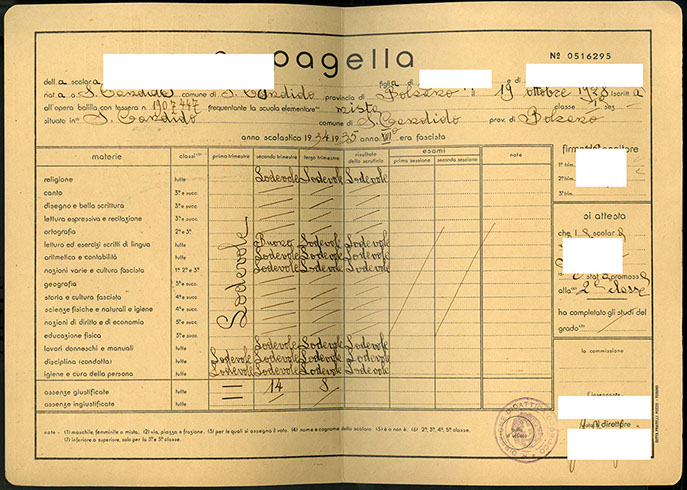 pagella
Nº 0516295
dell a scolar a figli a di e di
nat a a S. Candido comune di S. Candido provincia di Bolzano il 19 ottobre 1928 iscritt a
all'opera balilla con tessera n. 1907447 frequentante la scuola elementare mista classe sez
situata in S. Candido comune di S. Candido prov. di Bolzano
anno scolastico 1934-1935 anno era fascista
materie classi primo trimestre secondo trimestre terzo trimestre risultato dello scrutinio esami note
prima sessione seconda sessione
Lodevole
religione tutte Lodevole Lodevole Lodevole
canto 3ª e succ.
disegno e bella scrittura 3ª e succ.
lettura espressiva e recitazione 3ª e succ.
ortografia 2ª e 3ª
lettura ed esercizi scritti di lingua tutte Buono Lodevole Lodevole
aritmetica e contabilità tutte Lodevole Lodevole Lodevole
nozioni varie e cultura fascista 1ª 2ª e 3ª Lodevole Lodevole Lodevole
geografia 3ª e succ.
storia e cultura fascista 4ª e succ.
scienze fisiche e naturali e igiene 4ª e succ.
nozioni di diritto e di economia 5ª e succ.
educazione fisica tutte
lavori donneschi e manuali tutte Lodevole Lodevole Lodevole
disciplina (condotta) tutte Lodevole Lodevole Lodevole Lodevole
igiene e cura della persona tutte Lodevole Lodevole Lodevole Lodevole
assenze giustificate tutte 14 8
assenze ingiustificate tutte
note - (1) maschile, femminile o mista. (2) via, piazza o frazione. (3) per le quali si assegna il voto. (4) nome e cognome dello scolaro. (5) è o non è. (6) 2ª, 3ª, 4ª, 5ª classe.
(7) inferiore o superiore, solo per la 3ª e 5ª classe.
bollo d'ufficio
1º trim.
2º trim.
3º
si attesta
che scolar
stat promoss
alla 2ª classe
ha completato gli studi del
grado
la commissione
il direttore